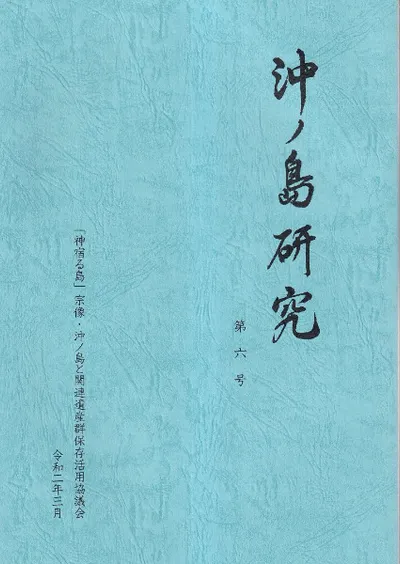 沖ノ島研究
第六号
「神宿る島」宗像・沖ノ島と関連遺産群保存活用協議会
令和二年三月